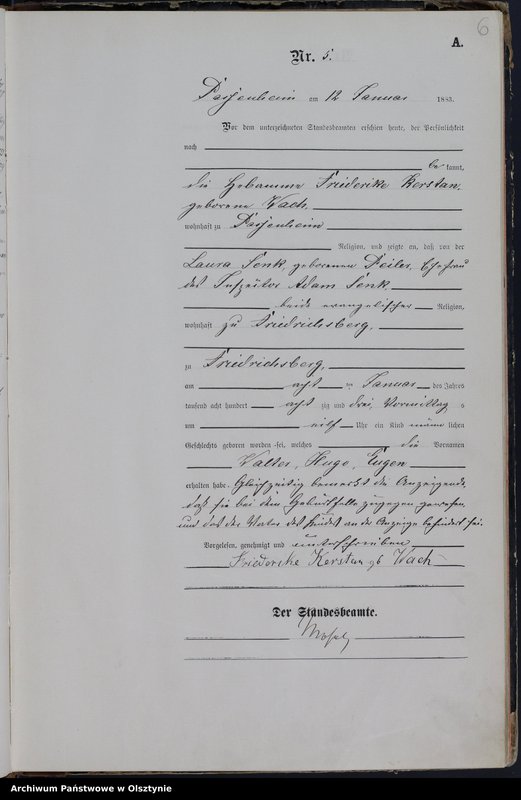 6
A.
Nr. 5.
Passenheim am 12 Januar 1883.
Vor dem unterzeichneten Standesbeamten erschien heute, der Persönlichkeit
nach
be kannt,
die Hebamme Friederike Kerstan,
geborene Wach
wohnhaft zu Passenheim
Religion, und zeigte an, daß von der
Laura Senk, geborenen Deiler, Ehefrau
des Inspektor Adam Senk
beide evangelischer Religion,
wohnhaft zu Friedrichsberg,
zu Friedrichsberg,
am acht ten Januar des Jahres
tausend acht hundert acht zig und drei, Vormittag s
um eilf Uhr ein Kind männ lichen
Geschlechts geboren worden sei, welches die Vornamen
Walter, Hugo, Eugen
erhalten habe. Gleichzeitig bemerkt die Anzeigende,
daß sie bei dem Geburtsfalle zugegen gewesen,
und das der Vater des Kindes an der Anzeige behindert sei.
Vorgelesen, genehmigt und unterschrieben
Friederike Kerstan gb Wach
Der Standesbeamte.
Archiwum Państwowe w Olsztynie